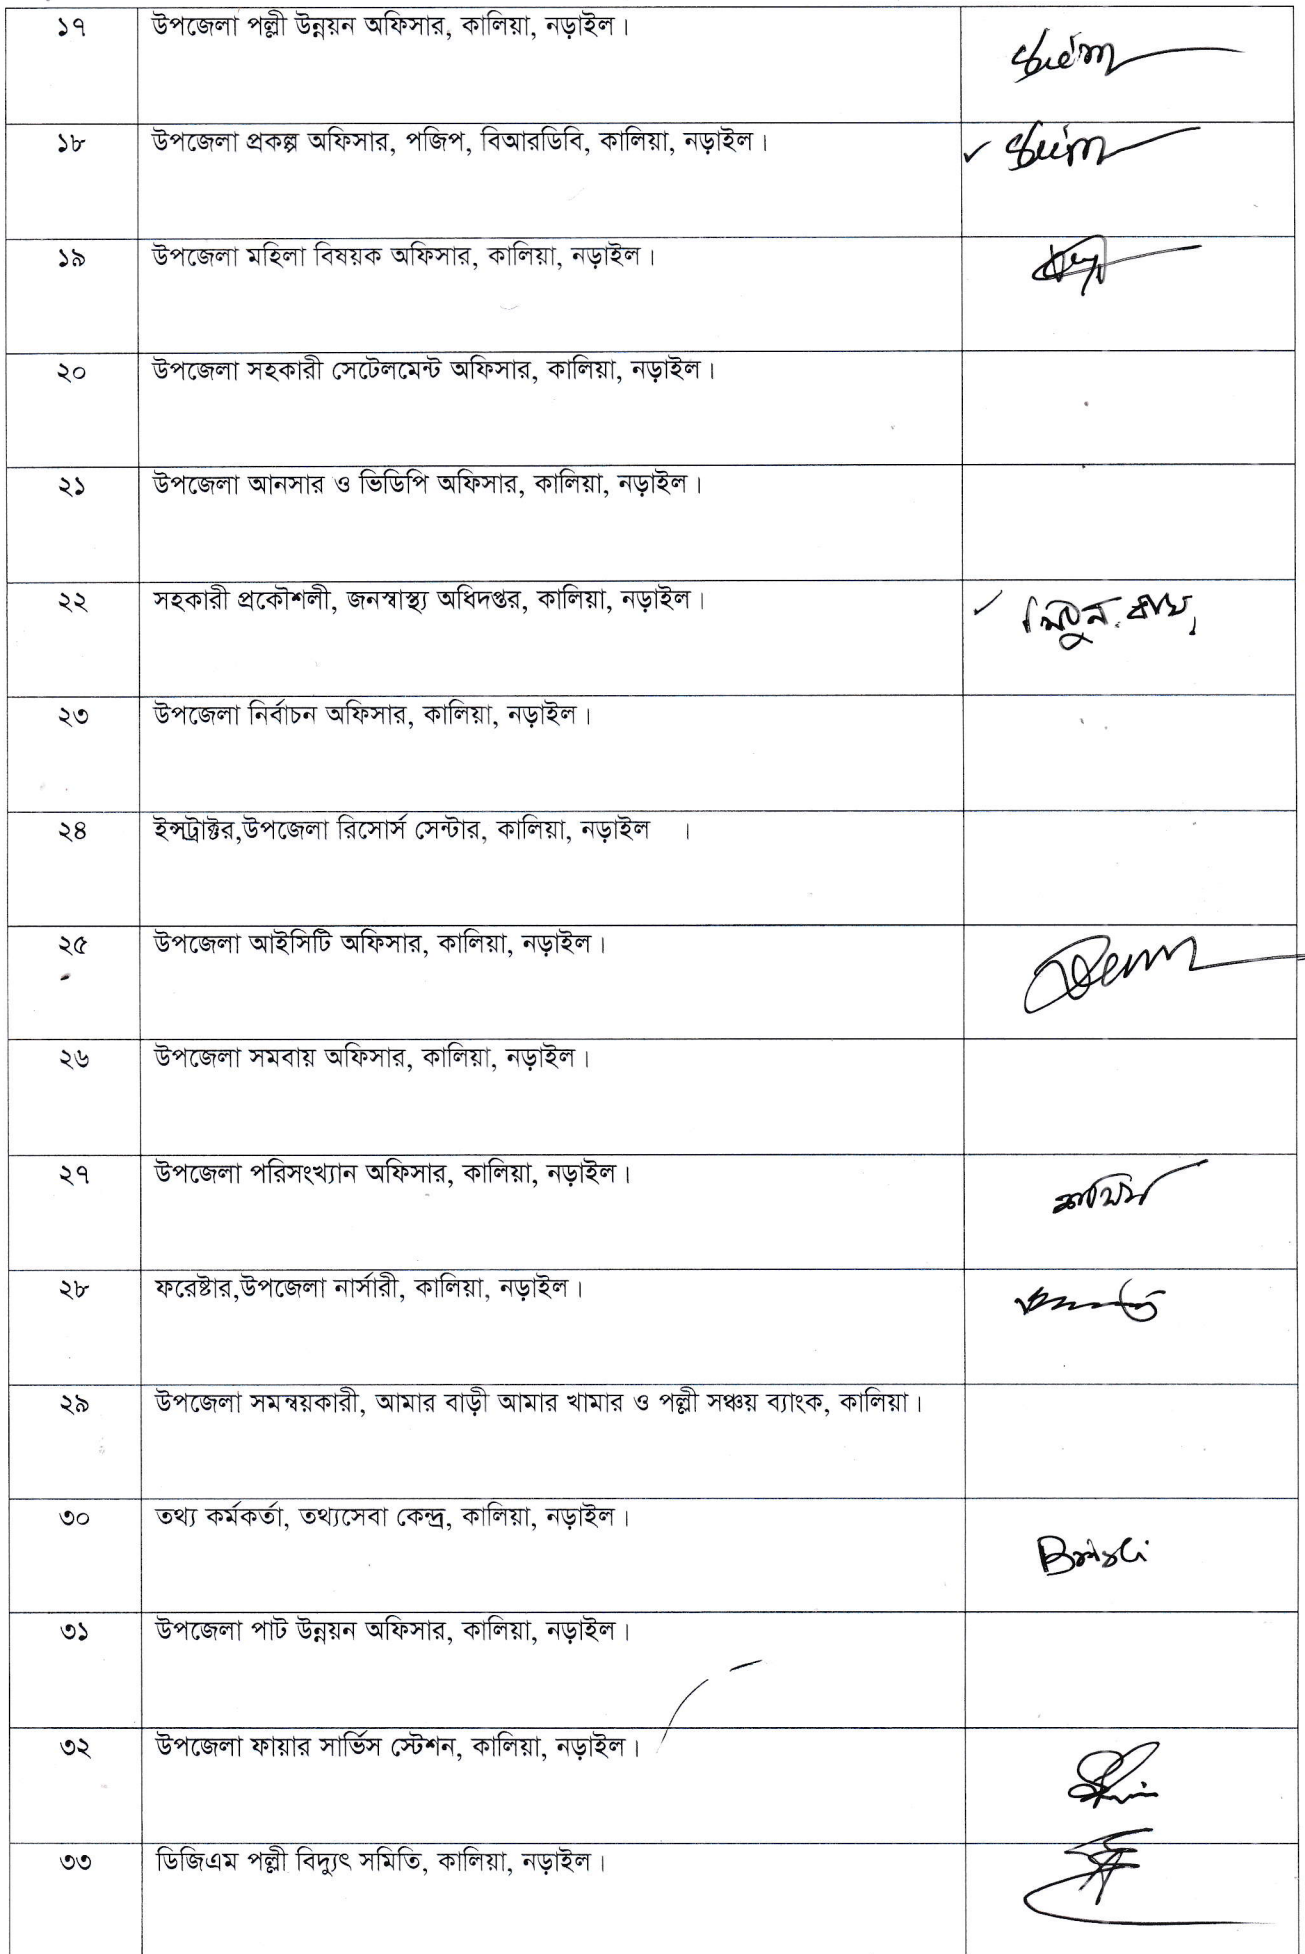 ১৭ উপজেলা পল্লী উন্নয়ন অফিসার, কালিয়া, নড়াইল।
১৮ উপজেলা প্রকল্প অফিসার, পজিপ, বিআরডিবি, কালিয়া, নড়াইল।
১৯ উপজেলা মহিলা বিষয়ক অফিসার, কালিয়া, নড়াইল।
২০ উপজেলা সহকারী সেটেলমেন্ট অফিসার, কালিয়া, নড়াইল।
২১ উপজেলা আনসার ও ভিডিপি অফিসার, কালিয়া, নড়াইল।
২২ সহকারী প্রকৌশলী, জনস্বাস্থ্য অধিদপ্তর, কালিয়া, নড়াইল।
২৩ উপজেলা নির্বাচন অফিসার, কালিয়া, নড়াইল।
২৪ ইন্সট্রাক্টর,উপজেলা রিসোর্স সেন্টার, কালিয়া, নড়াইল ।
২৫ উপজেলা আইসিটি অফিসার, কালিয়া, নড়াইল।
২৬ উপজেলা সমবায় অফিসার, কালিয়া, নড়াইল।
২৭ উপজেলা পরিসংখ্যান অফিসার, কালিয়া, নড়াইল।
২৮ ফরেষ্টার,উপজেলা নার্সারী, কালিয়া, নড়াইল।
২৯ উপজেলা সমন্বয়কারী, আমার বাড়ী আমার খামার ও পল্লী সঞ্চয় ব্যাংক, কালিয়া।
৩০ তথ্য কর্মকর্তা, তথ্যসেবা কেন্দ্র, কালিয়া, নড়াইল।
৩১ উপজেলা পাট উন্নয়ন অফিসার, কালিয়া, নড়াইল।
৩২ উপজেলা ফায়ার সার্ভিস স্টেশন, কালিয়া, নড়াইল।
৩৩ ডিজিএম পল্লী বিদ্যুৎ সমিতি, কালিয়া, নড়াইল।